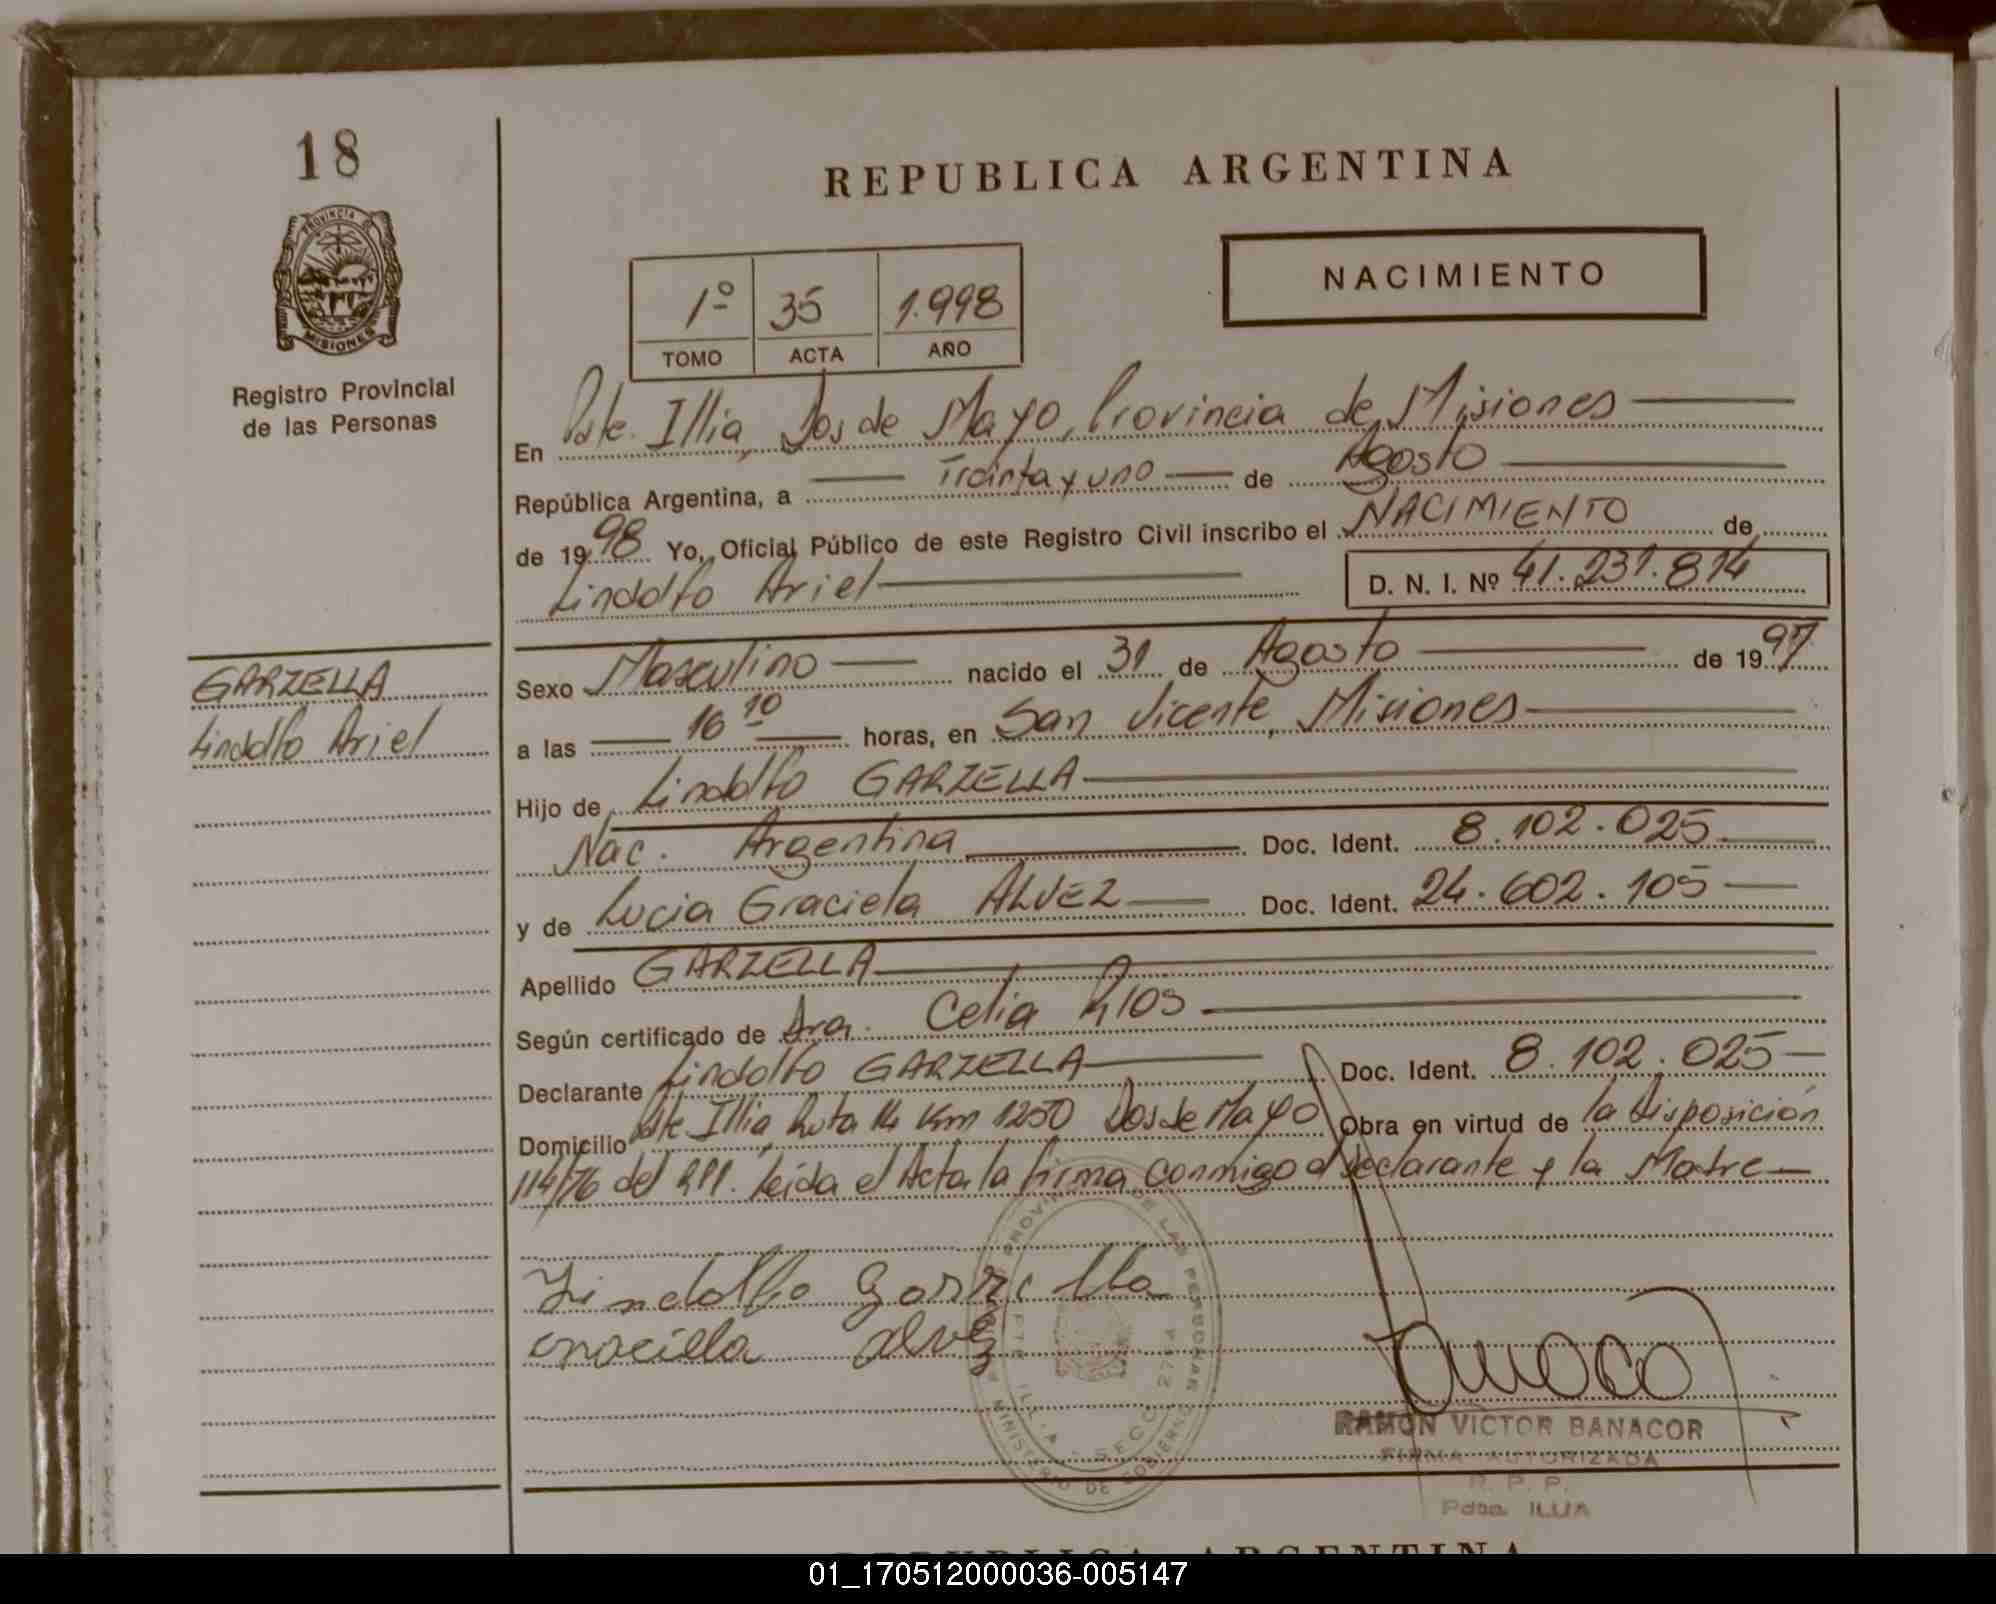 18
PROVINCIA DE
MISIONES
Registro Provincial
de las Personas
GARZELLA
Lindolfo Ariel
REPUBLICA ARGENTINA
NACIMIENTO
1º 35 1.998
TOMO ACTA AÑO
En Pdte. Illia, Dos de Mayo, Provincia de Misiones
República Argentina, a Treinta y uno de Agosto
de 1998 Yo, Oficial Público de este Registro Civil inscribo el NACIMIENTO de
Lindolfo Ariel D. N. I. Nº 41.231.814
Sexo Masculino nacido el 31 de Agosto de 1997
a las 16 10 horas, en San Vicente, Misiones
Hijo de Lindolfo GARZELLA
Nac. Argentina Doc. Ident. 8.102.025
y de Lucia Graciela ALVEZ Doc. Ident. 24.602.105
Apellido GARZELLA
Según certificado de Dra. Celia RIOS
Declarante Lindolfo GARZELLA Doc. Ident. 8.102.025
Domicilio Pdte. Illia, Ruta 14 Km 1250 Dos de Mayo Obra en virtud de la Disposición
114/76 del RPP. Leída el Acta la firma conmigo el declarante y la Madre
Lindolfo Garzella
alvez
RAMON VICTOR BANACOR
FIRMA AUTORIZADA
R. P. P.
Pdte. ILLIA
REPUBLICA ARGENTINA
01_170512000036-005147